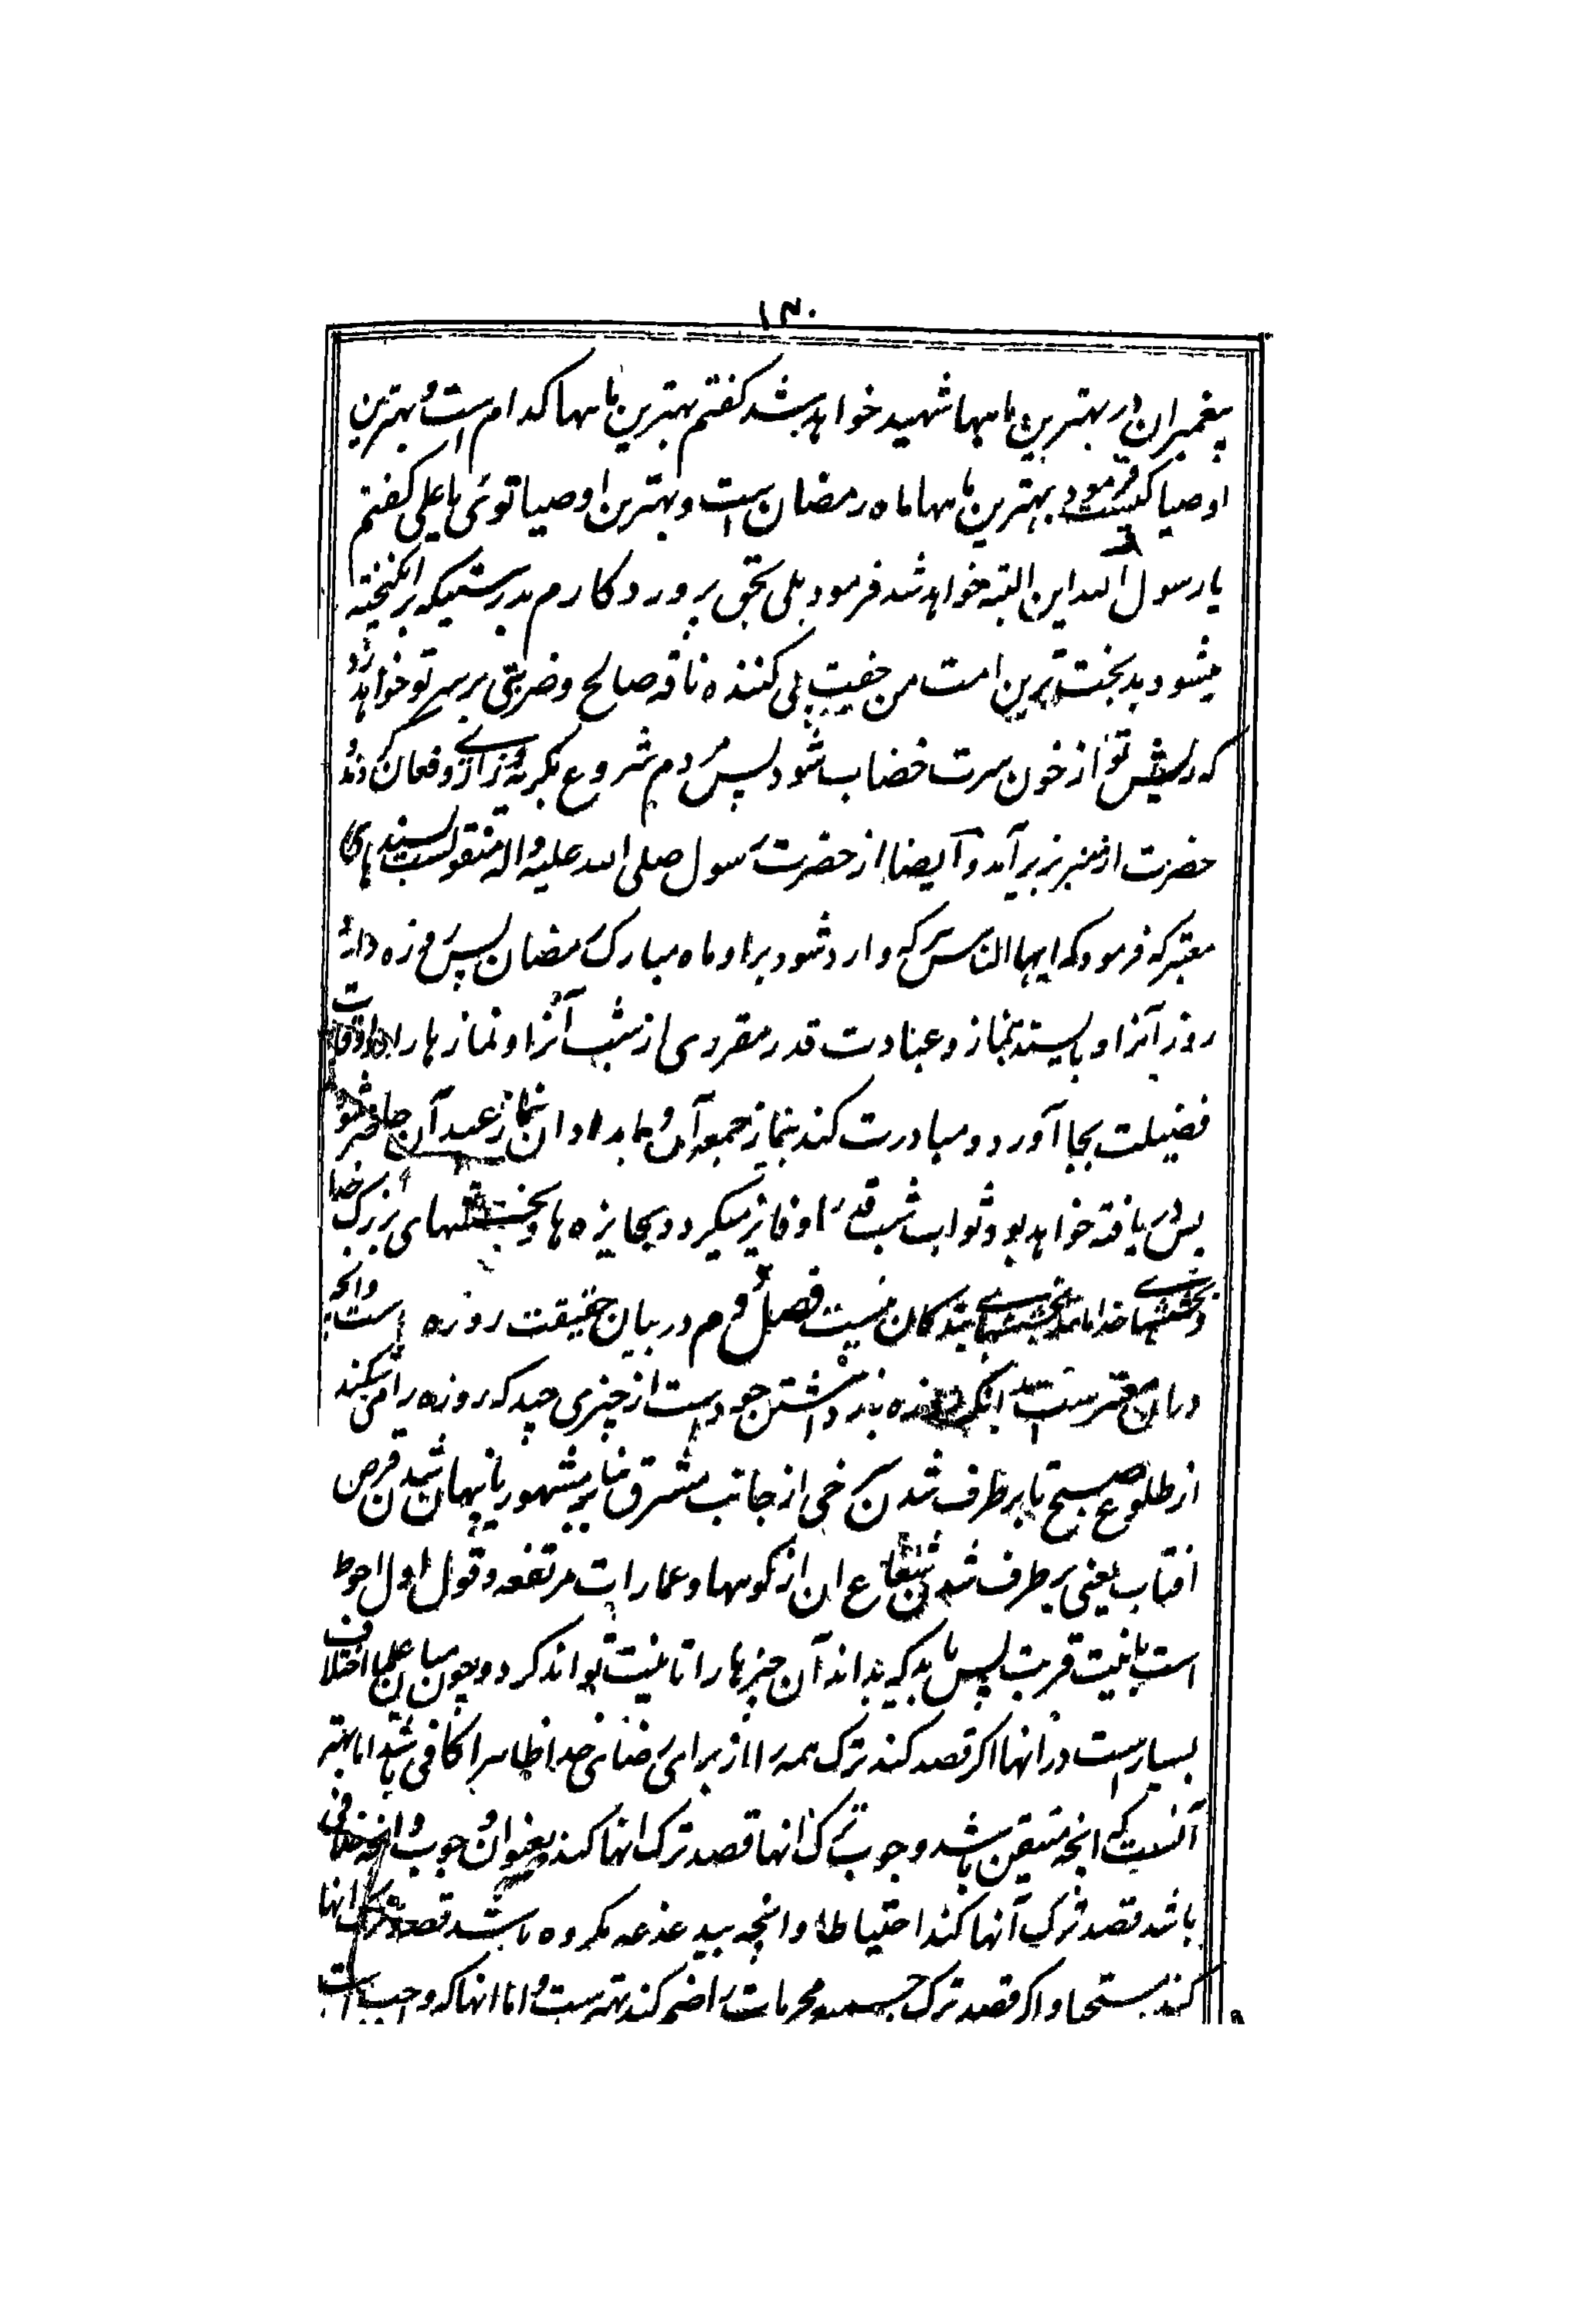 ۱۳۰
پیغمبران در بهترین ماهها شهید خواهد شد گفتم بهترین ماهها کدام است و بهترین
اوصیا کیست فرمود بهترین ماهها ماه رمضان است و بهترین اوصیا توئی یا علی گفتم
یا رسول الله این البته خواهد شد فرمود بلی بحق پروردکارم بدرستیکه برانکیخته
میشود بدبخت ترین امت من جفت پی کننده ناقه صالح و ضربتی بر سر تو خواهد زد
که ریش تو از خون سرت خضاب شود پس مردم شروع بکریه و زاری و فغان کردند و
حضرت از منبر بزیر آمد و ایضا از حضرت رسول صلی الله علیه و اله منقولست بسندهای
معتبر که فرمود که ایها الناس هر که وارد شود بر او ماه مبارک رمضان پس روزه دارد
روز آنرا و بایستد بنماز و عبادت قدر مقرری از شب آنرا و نمازها را در اوقات
فضیلت بجا آورد و مبادرت کند بنماز جمعه آن و بامدادان بنماز عید آن حاضر شود
پس دریافته خواهد بود ثواب شب قدر را و فایز میکردد بجایزه ها و بخششهای بزرک خدا
و بخششهای خدا مانند بخششهای بندکان نیست فصل دوم در بیان حقیقت روزه است و آنچه
در آن معتبرست بدانکه روزه باز داشتن خود است از چیزی چند که روزه را می شکند
از طلوع صبح تا برطرف شدن سرخی از جانب مشرق بنا بر مشهور یا پنهان شدن قرص
افتاب یعنی برطرف شدن شعاع ان از کوهها و عمارات مرتفعه و قول اول احوط
است با نیت قربت پس باید که بداند آن چیزها را تا نیت تواند کرد و چون میان علما اختلاف
بسیار است در انها اکر قصد کند ترک همه را از برای رضای خدا ظاهرا کافی باشد اما بهتر
آنست که انچه متیقن باشد وجوب ترک انها قصد ترک انها کند بعنوان وجوب و انچه خلافی
باشد قصد ترک آنها کند احتیاطا و انچه بید عذعه مکروه باشد قصد ترک انها
کند استحبابا و اکر قصد ترک جمیع محرمات را ضم کند بهترست و اما انها که واجب است